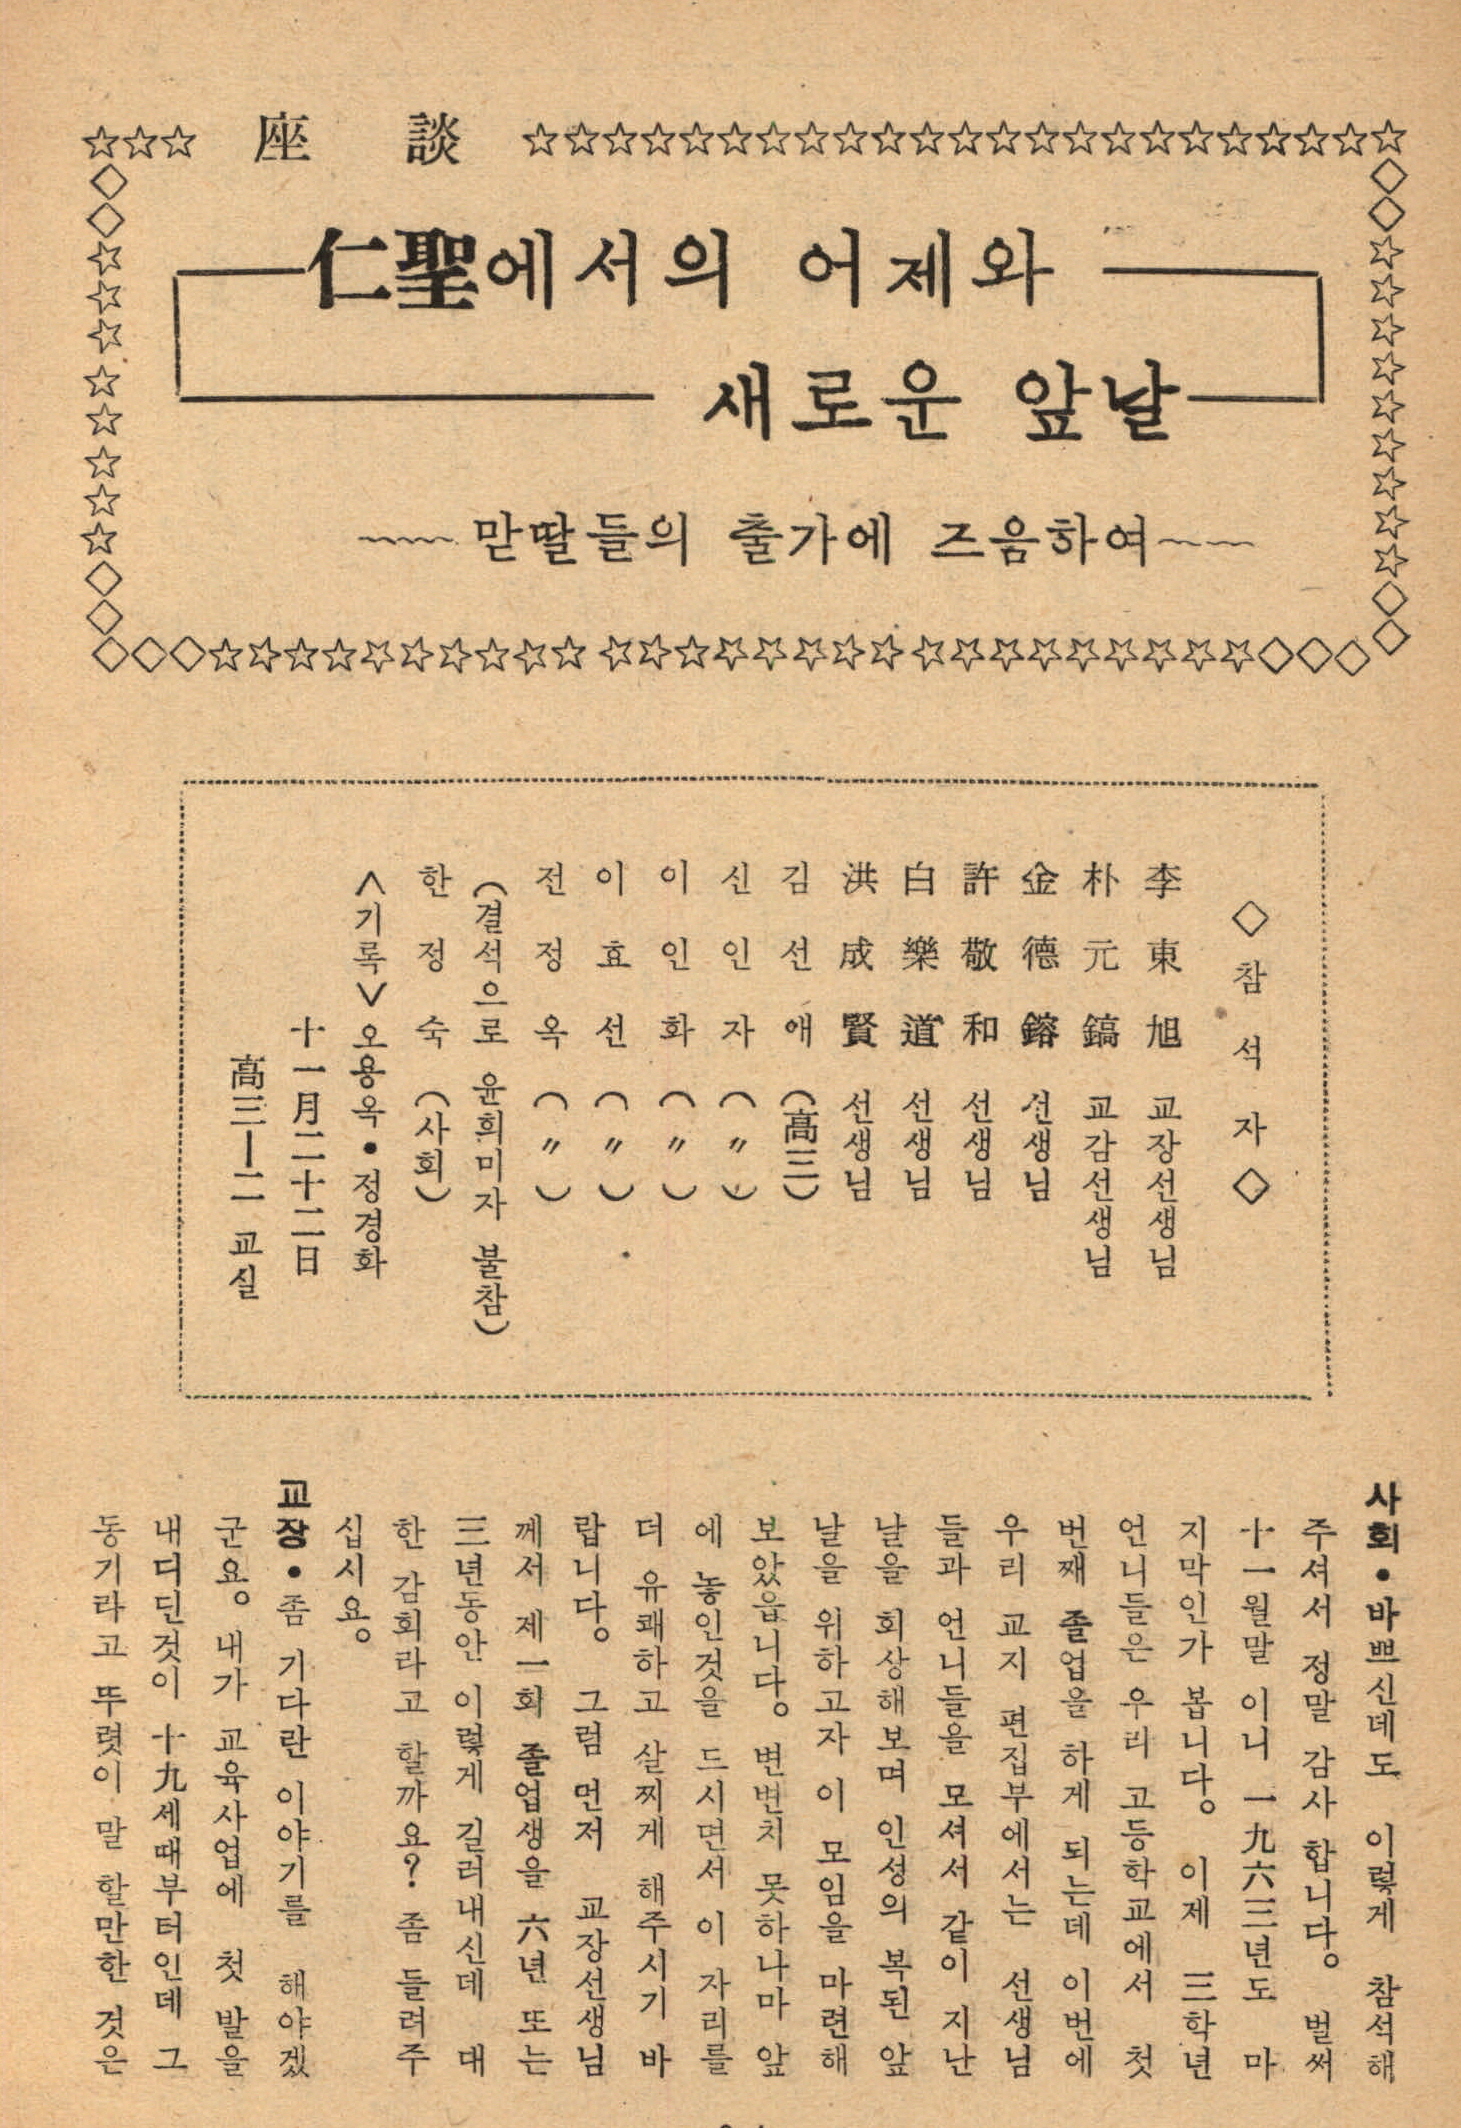 座談
仁聖에서의 어제와
새로운 앞날
맏딸들의 출가에 즈음하여
◇참석자◇
李東旭 교장선생님
朴元鎬 교감선생님
金德鎔 선생님
許敬和 선생님
白樂道 선생님
洪成賢 선생님
김선애 (高三)
신인자 (〃)
이인화 (〃)
이효선 (〃)
전정옥 (〃)
(결석으로 윤희미자 불참)
한정숙 (사회)
<기록> 오용옥•정경화
十一月二十二日
高三―二 교실
사회•바쁘신데도 이렇게 참석해
주셔서 정말 감사 합니다. 벌써
十一월말 이니 一九六三년도 마
지막인가 봅니다. 이제 三학년
언니들은 우리 고등학교에서 첫
번째 졸업을 하게 되는데 이번에
우리 교지 편집부에서는 선생님
들과 언니들을 모셔서 같이 지난
날을 회상해보며 인성의 복된 앞
날을 위하고자 이 모임을 마련해
보았읍니다. 변변치 못하나마 앞
에 놓인것을 드시면서 이 자리를
더 유쾌하고 살찌게 해주시기 바
랍니다. 그럼 먼저 교장선생님
께서 제一회 졸업생을 六년 또는
三년동안 이렇게 길러내신데 대
한 감회라고 할까요? 좀 들려주
십시요.
교장•좀 기다란 이야기를 해야겠
군요. 내가 교육사업에 첫 발을
내디딘것이 十九세때부터인데 그
동기라고 뚜렷이 말 할만한 것은